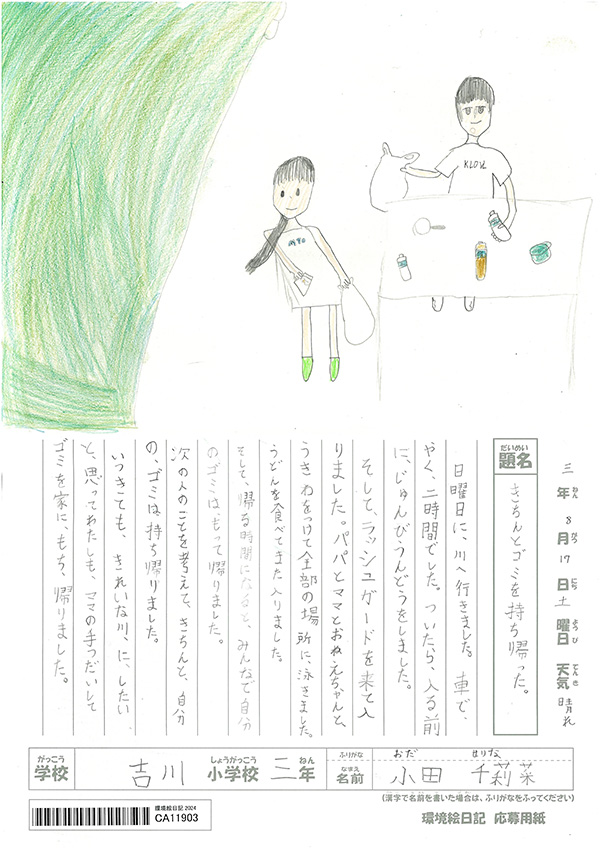 三年8月17日土曜日 天気晴れ
ねん がつ にち ようび てんき
だいめい
題名 きちんとゴミを持ち帰った。
日曜日に、川へ行きました。車で、
やく、二時間でした。ついたら、入る前
に、じゅんびうんどうをしました。
そして、ラッシュガードを来て入
りました。パパとママとおねえちゃんと、
うきわをつけて全部の場所に、泳ぎました。
うどんを食べてまた入りました。
そして、帰る時間になると、みんなで自分
のゴミはもって帰りました。
次の人のことを考えて、きちんと、自分
の、ゴミは、持ち帰りました。
いつきても、きれいな川、に、したい
と、思ってわたしも、ママの手つだいして
ゴミを家に、もち、帰りました。
がっこう しょうがっこう ねん ふりがな おだ
学校 吉川 小学校 三年 なまえ 名前 小田 千莉菜
(漢字で名前を書いた場合は、ふりがなをふってください)
環境絵日記 2024
CA11903
環境絵日記 応募用紙